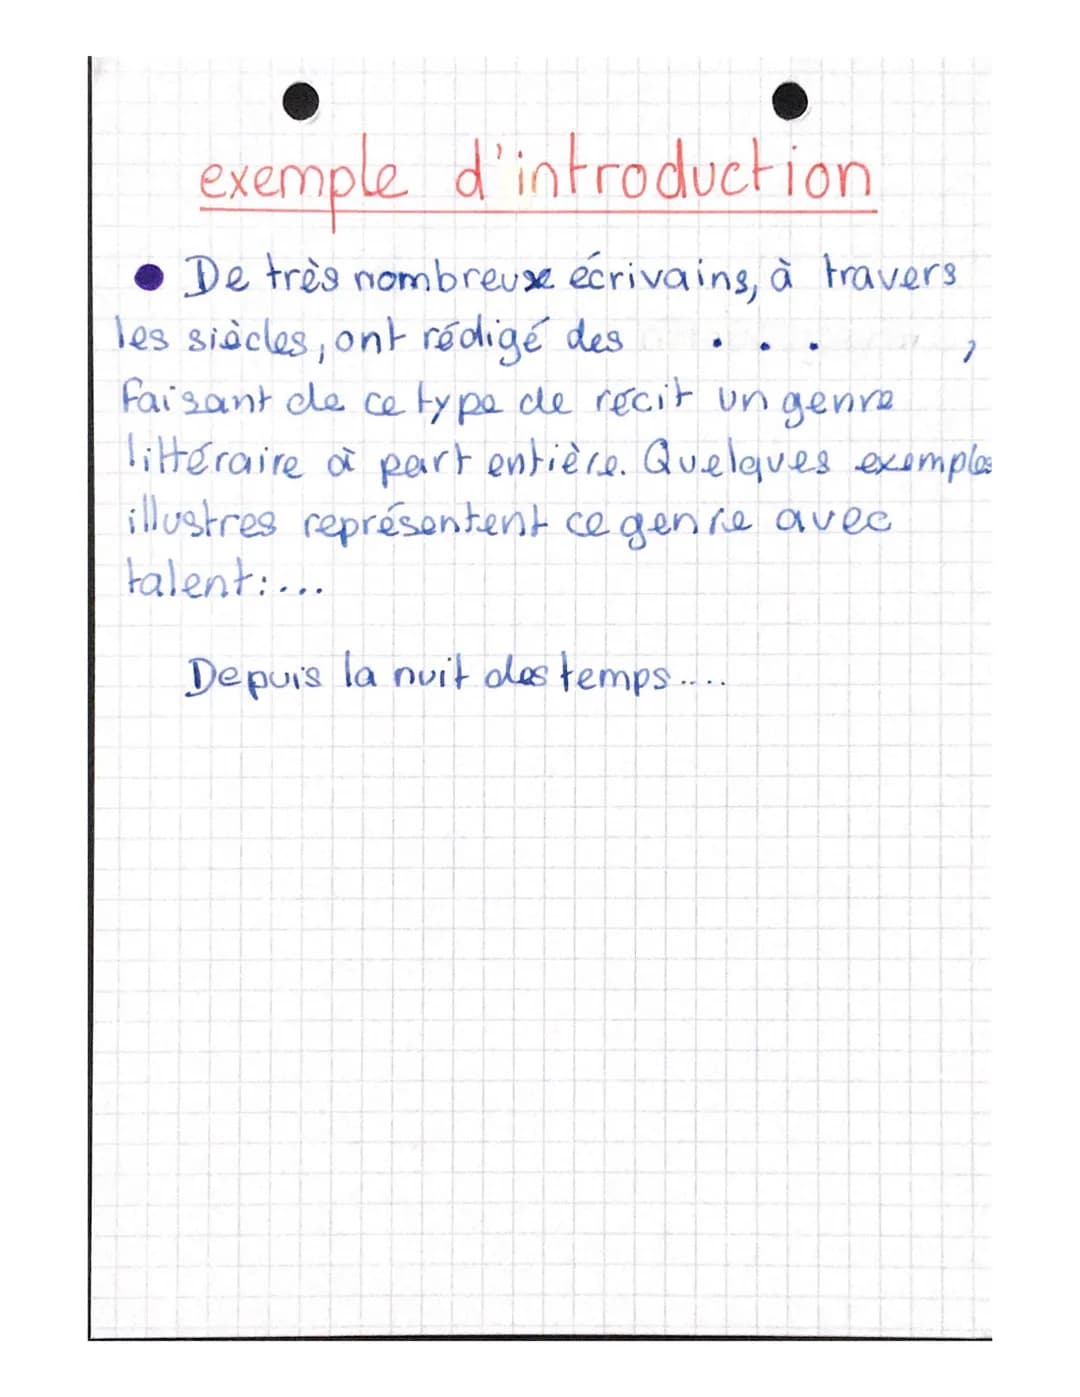 exemple d'introduction
● De très nombreux écrivains, à travers
les siècles, ont rédigé des . . . ,
faisant de ce type de récit un genre
littéraire à part entière. Quelques exemples
illustres représentent ce genre avec
talent:...
Depuis la nuit des temps....